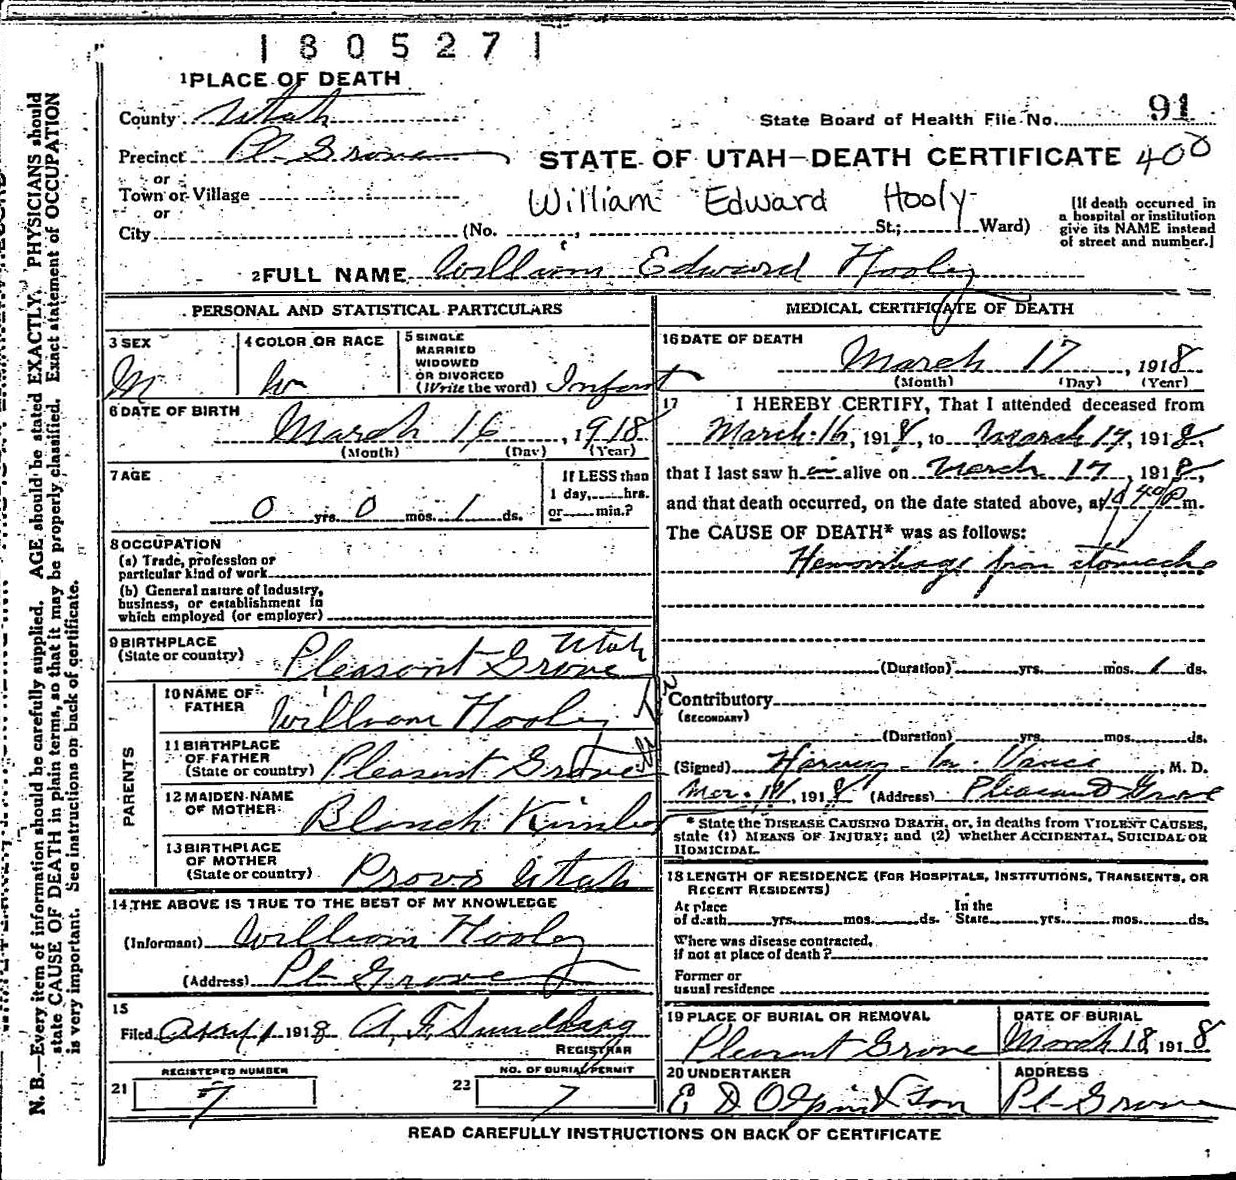 1805271
1 PLACE OF DEATH
County Utah
State Board of Health File No. 91
Precinct Pl. Grove
STATE OF UTAH—DEATH CERTIFICATE 400
or
Town or Village
William Edward Hooly
or
City (No. , St.; Ward)
(If death occurred in
a hospital or institution
give its NAME instead
of street and number.)
2 FULL NAME William Edward Hooley
PERSONAL AND STATISTICAL PARTICULARS
3 SEX
M
4 COLOR OR RACE
W
5 SINGLE
MARRIED
WIDOWED
OR DIVORCED
(Write the word) Infant
6 DATE OF BIRTH
March 16, 1918
(Month) (Day) (Year)
7 AGE
0 yrs. 0 mos. 1 ds.
If LESS than
1 day, hrs.
or min.?
8 OCCUPATION
(a) Trade, profession or
particular kind of work
(b) General nature of Industry,
business, or establishment in
which employed (or employer)
9 BIRTHPLACE
(State or country) Pleasant Grove Utah
PARENTS
10 NAME OF
FATHER William Hooley
11 BIRTHPLACE
OF FATHER
(State or country) Pleasant Grove
12 MAIDEN NAME
OF MOTHER Blanch
13 BIRTHPLACE
OF MOTHER
(State or country) Provo Utah
14 THE ABOVE IS TRUE TO THE BEST OF MY KNOWLEDGE
(Informant) William Hooley
(Address) Pl Grove
15
Filed 1 1918
REGISTRAR
REGISTERED NUMBER
21 7
NO. OF BURIAL PERMIT
22 7
MEDICAL CERTIFICATE OF DEATH
16 DATE OF DEATH
March 17, 1918
(Month) (Day) (Year)
17 I HEREBY CERTIFY, That I attended deceased from
March 16, 1918, to March 17, 1918,
that I last saw him alive on March 17, 1918,
and that death occurred, on the date stated above, at 10 40 P m.
The CAUSE OF DEATH* was as follows:
Hemorrhage from stomach
(Duration) yrs. mos. 1 ds.
Contributory
(SECONDARY)
(Duration) yrs. mos. ds.
(Signed) Harvey M. Vance, M. D.
Mar. 1918 (Address) Pleasant Grove
* State the DISEASE CAUSING DEATH, or, in deaths from VIOLENT CAUSES,
state (1) MEANS OF INJURY; and (2) whether ACCIDENTAL, SUICIDAL OR
HOMICIDAL.
18 LENGTH OF RESIDENCE (FOR HOSPITALS, INSTITUTIONS, TRANSIENTS, OR
RECENT RESIDENTS)
At place
of death yrs. mos. ds.
In the
State yrs. mos. ds.
Where was disease contracted,
if not at place of death?
Former or
usual residence
19 PLACE OF BURIAL OR REMOVAL
Pleasant Grove
DATE OF BURIAL
March 18, 1918
20 UNDERTAKER
E D Olpin & Son
ADDRESS
Pl Grove
READ CAREFULLY INSTRUCTIONS ON BACK OF CERTIFICATE
N. B.—Every item of information should be carefully supplied. AGE should be stated EXACTLY. PHYSICIANS should
state CAUSE OF DEATH in plain terms, so that it may be properly classified. Exact statement of OCCUPATION
is very important. See instructions on back of certificate.